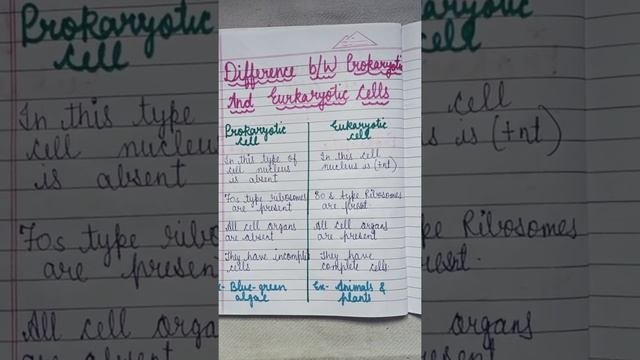 Difference b/w Prokaryoti
And Eurkaryotic Cells
Prokaryotic
Cell
In this type of
cell nucleus
is absent
70s type ribosomes
are present
All cell organs
are absent
They have incomple
cells
Blue-green
algae
Eukaryotic
cell
In this cell
nucleus is (+nt)
80 s type Ribosomes
are prest
All cell organs
are present.
They have
complete cells
Ex- Animals &
plants
Prokaryotic
Cell
In this type
cell nucleus
is absent
70s type ribo
are presen
All cell organ
are absent
karyotic
cell
cell
s is (+nt)
pe Ribosomes
rest.
organs
sent